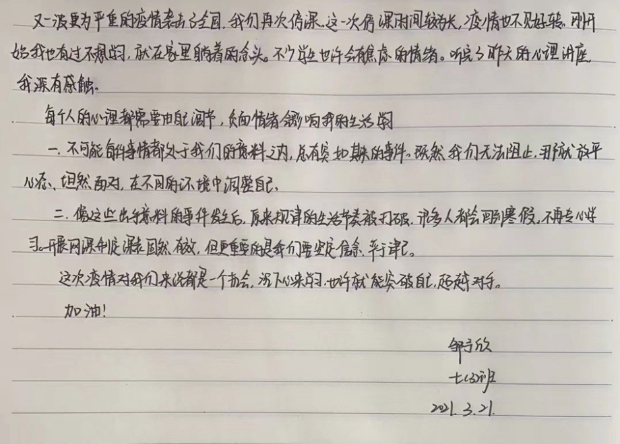 又一波更为严重的疫情袭击了全国，我们再次停课。这一次停课时间较为长，疫情也不见好转。刚开
始我也有过不想学习，就在家里躺着的念头。不少学生也许会有焦虑的情绪。听完了昨天的心理讲座，
我深有感触。
每个人的心理都需要由自己调节，负面情绪会影响我们的生活
一. 不可能每件事情都处于我们的意料之内，总有突如其来的事件。既然我们无法阻止，那就放平
心态、坦然面对，在不同的环境中调整自己、
二. 像这些出乎意料的事件发生后，原来规律的生活节奏被打破，许多人都会 寒假，不再专心学
习。开展网课制定课表固然有效，但更重要的是我们要坚定信念、严于律己。
这次疫情对我们来说都是一个机会，沉下心来学习，也许就能突破自己，超越对手。
加油！
邹 欣
班
2021.3.21.